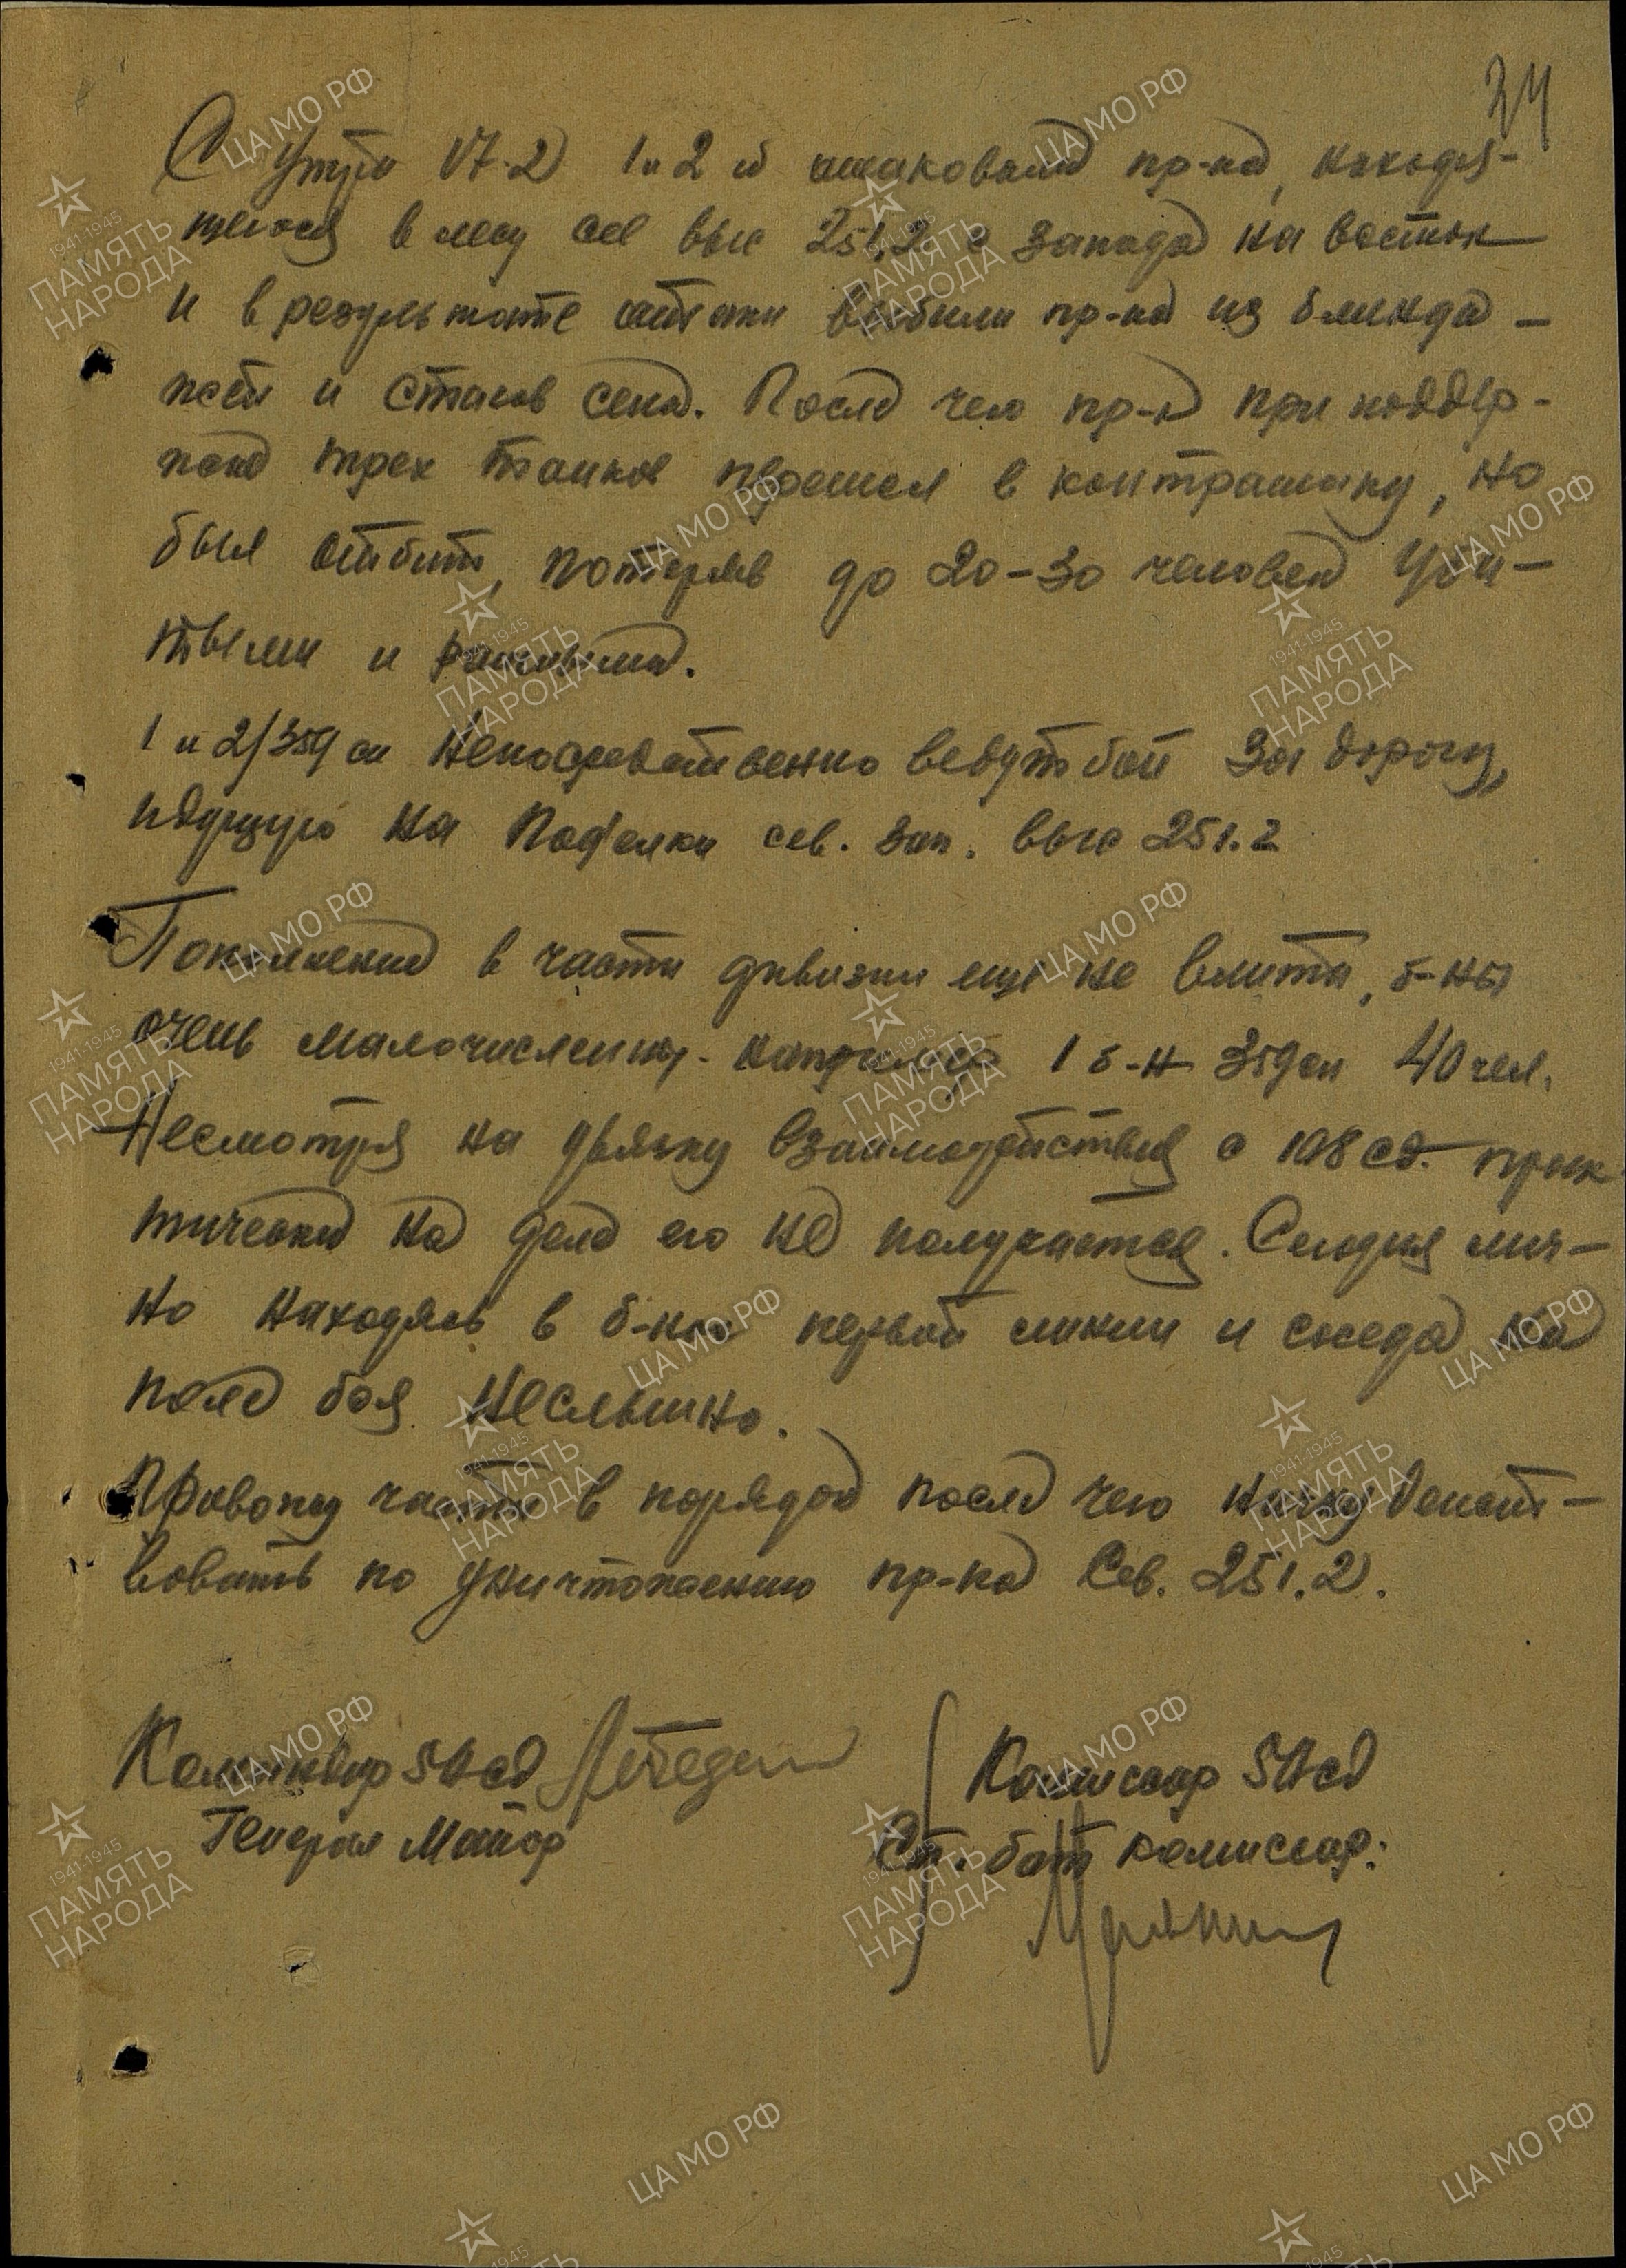 34
С утра 17.2 1 и 2 й атаковали пр-ка, находя-
щегося в лесу выс 251.2 с запада на восток
и в результате атаки выбили пр-ка из блинда-
жей и стагов сена. После чего пр-к при поддер-
жке трех танков перешел в контратаку, но
был отбит, потеряв до 20-30 человек уби-
тыми и ранеными.
1 и 2/359 сп непосредственно ведут бой за дорогу,
идущую на Поделки сев. зап. выс 251.2
Пополнение в части дивизии еще не влито, б-ны
очень малочислены. например 1 б-н 359 сп 40 чел.
Несмотря на увязку взаимодействия с 108 сд. прак
тически на деле его не получается. Сегодня лич-
но находясь в б-нах первой линии и соседа на
поле боя неслышно.
Привожу части в порядок после чего начну действ-
вовать по уничтожению пр-ка Сев. 251.2.
Командир 50 сд Лебеденко
Генерал Майор
Комиссар 50 сд
Ст. бат комиссар:
ЦА МО РФ
1941-1945
ПАМЯТЬ
НАРОДА